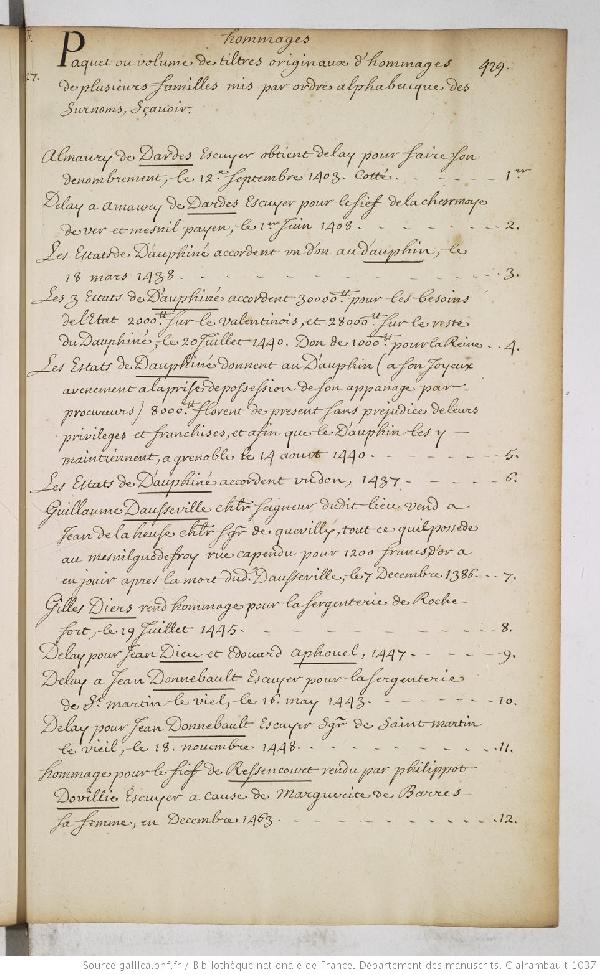 hommages
Paquet ou volume de tiltres originaux d'hommages 429.
de plusieurs familles mis par ordre alphabetique des
Surnoms, Sçavoir.
Almaury de Dardes Escuyer obtient delay pour faire son
denombrement, le 12.e Septembre 1403. Cotté. 1er
Delay a Amaury de Dardes Escuyer pour le fief de la
de ver et mesnil payen, le 1er Juin 1408. 2.
Les Estats de Dauphiné accordent un don au dauphin, le
18 mars 1438. 3.
Les 3 Estats de Dauphiné accordent 30000tt pour les besoins
de l'Etat 2000tt sur le Valentinois, et 28000tt sur le reste
du Dauphiné, le 20 Juillet 1440. Don de 1000tt pour la Reine. 4.
Les Estats de Dauphiné donnent au Dauphin (a son Joyeux
avenement a la prise de possession de son appanage par
procureurs) 8000tt florent de present sans prejudice de leurs
privileges et franchises, et afin que le Dauphin les y
maintiennent, a grenoble le 14 aoust 1440. 5.
Les Estats de Dauphiné accordent un don, 1437. 6.
Guillaume Dausseville chlr seigneur dudit lieu vend a
Jean de la heuse chlr sgr de quevilly, tout ce qu'il possede
au mesnilguodefroy rue capendu pour 1200 francs d'or a
en jouir apres la mort dud. Dausseville, le 7 Decembre 1386. 7.
Gilles Diers rend hommage pour la sergenterie de Roche-
fort, le 29 Juillet 1445. 8.
Delay pour Jean Dieu et Edouard Aphouel, 1447. 9.
Delay a Jean Donnebault Escuyer pour la sergenterie
de St. martin le viel, le 16 may 1443. 10.
Delay pour Jean Donnebault Escuyer Sgr de Saint martin
le vieil, le 18. novembre 1448. 11.
hommage pour le fief de Ressencourt rendu par philippot
Dovillie Escuyer a cause de Marguerite de Barres
sa femme, en Decembre 1463. 12.
Source gallica.bnf.fr / Bibliothèque nationale de France. Département des manuscrits. Clairambault 1037